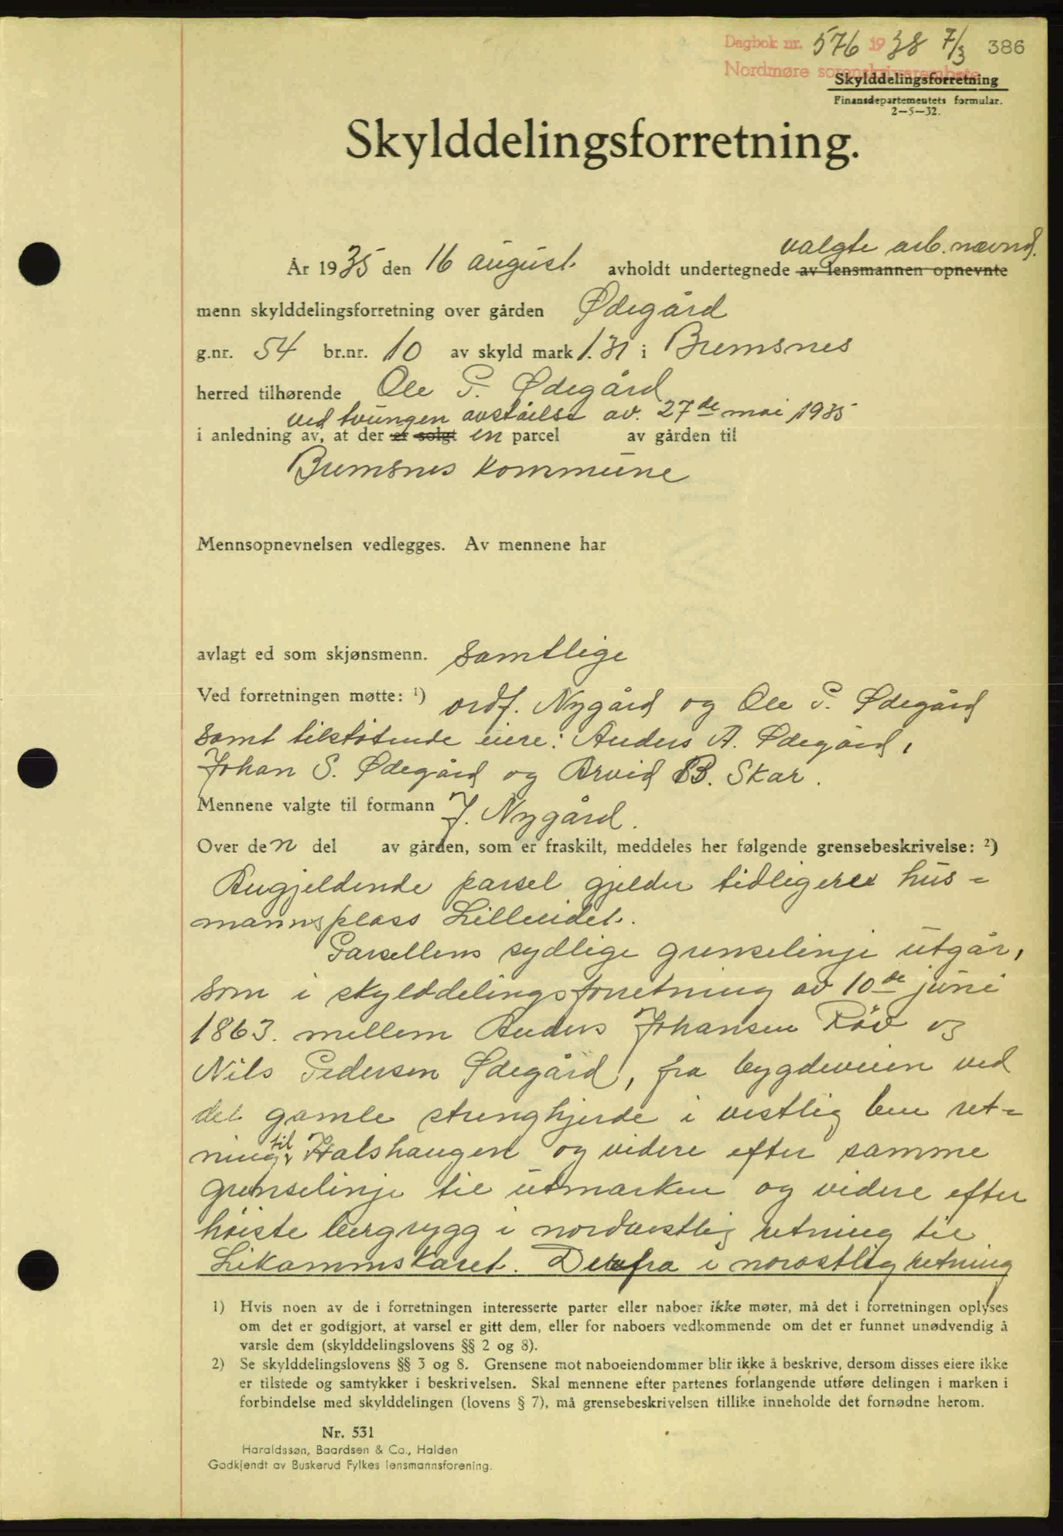 Dagbok nr. 576 1938 7/3 386
Nordmøre sorenskriverembete
Skylddelingsforretning
Finansdepartementets formular.
2—5—32.
Skylddelingsforretning.
valgte arb. nævnd.
År 1935 den 16 august avholdt undertegnede av lensmannen opnevnte
menn skylddelingsforretning over gården Ødegård
g.nr. 54 br.nr. 10 av skyld mark 1.31 i Bremsnes
herred tilhørende Ole P. Ødegård
ved tvungen avståelse av 27de mai 1935
i anledning av, at der er solgt en parcel av gården til
Bremsnes kommune
Mennsopnevnelsen vedlegges. Av mennene har
avlagt ed som skjønsmenn. samtlige
Ved forretningen møtte: 1) ordf. Nygård og Ole P. Ødegård
samt tilstøtende eiere: Anders A. Ødegård,
Johan S. Ødegård og Arvid B. Skar.
Mennene valgte til formann J. Nygård.
Over den del av gården, som er fraskilt, meddeles her følgende grensebeskrivelse: 2)
Angjeldende parsel gjelder tidligere hus=
mannsplass Lilleeidet.
Parsellens sydlige grenselinje utgår,
som i skylddelingsforretning av 10de juni
1863 mellem Anders Johansen Røv og
Nils Pedersen Ødegård, fra bygdeveien ved
det gamle strenghjerde i vestlig ret=
ning til Halshaugen og videre efter samme
grenselinje til utmarken og videre efter
høiste bergrygg i nordvestlig retning til
Likammskaret. Derfra i norostlig retning
1) Hvis noen av de i forretningen interesserte parter eller naboer ikke møter, må det i forretningen oplyses
om det er godtgjort, at varsel er gitt dem, eller for naboers vedkommende om det er funnet unødvendig å
varsle dem (skylddelingslovens §§ 2 og 8).
2) Se skylddelingslovens §§ 3 og 8. Grensene mot naboeiendommer blir ikke å beskrive, dersom disses eiere ikke
er tilstede og samtykker i beskrivelsen. Skal mennene efter partenes forlangende utføre delingen i marken i
forbindelse med skylddelingen (lovens § 7), må grensebeskrivelsen tillike inneholde det fornødne herom.
Nr. 531
Haraldssøn, Baardsen & Co., Halden
Godkjendt av Buskerud Fylkes lensmannsforening.